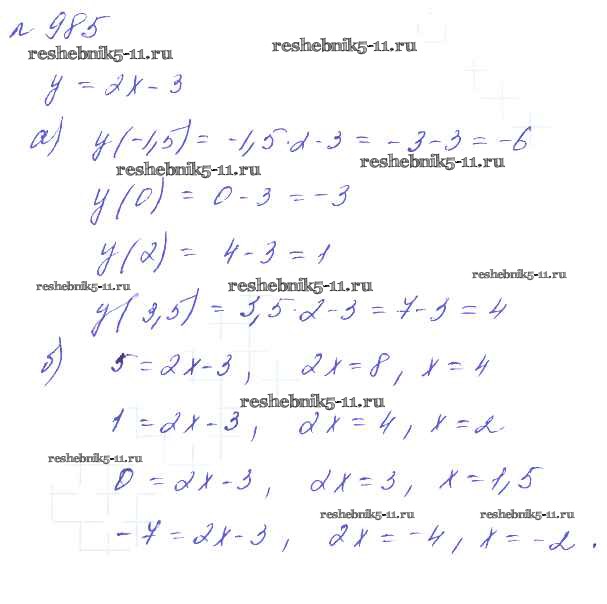 № 985
reshebnik5-11.ru reshebnik5-11.ru
y = 2x - 3
а) y(-1,5) = -1,5·2-3 = -3-3 = -6
reshebnik5-11.ru reshebnik5-11.ru
y(0) = 0-3 = -3
y(2) = 4-3 = 1
reshebnik5-11.ru reshebnik5-11.ru reshebnik5-11.ru
y(3,5) = 3,5·2-3 = 7-3 = 4
б) 5 = 2x-3, 2x = 8, x = 4
reshebnik5-11.ru
1 = 2x-3, 2x = 4, x = 2
reshebnik5-11.ru
0 = 2x-3, 2x = 3, x = 1,5
reshebnik5-11.ru reshebnik5-11.ru
-7 = 2x-3, 2x = -4, x = -2.